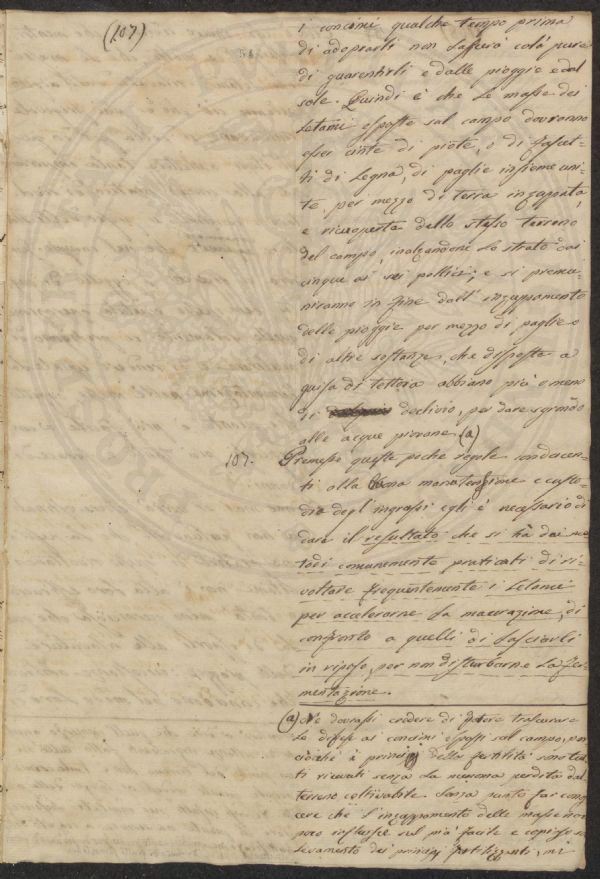 (107)
i concimi qualche tempo prima
di adoprarli non lascierò colà pure
di guarentirli e dalle pioggie e dal
sole. Quindi è che le masse dei
Letami esposte sul campo dovranno
esser cinte di piote, o di fascet-
ti di Legna, di paglie insieme uni-
te per mezzo di terra inzuppata,
e ricoperta dello stesso terreno
del campo, inalzandone lo strato dai
cinque ai sei pollici; e si premu-
niranno in fine dall' inzuppamento
delle pioggie per mezzo di paglie o
di altre sostanze, che disposte a
guisa di tettoia abbiano più o meno
di declivio, per dare sgrondo
alle acque piovane (a)
107. Premesse queste poche regole conducen-
ti alla buona manutenzione e custo-
dia degl' ingrassi egli è necessario di
dare il resultato che si hà dai me
todi comunemente praticati di ri-
voltare frequentemente i Letami
per accelerarne la macerazione, di
confronto a quelli di lasciarli
in riposo, per non disturbarne la fer-
mentazione.
(a) Nè dovrassi credere di potere trascurare
Le difese ai concimi esposti sul campo,
ciocchè i principj della fertilità sono tut
ti ricevuti senza la menoma perdita dal
terreno coltivabile senza punto far cono
cere che l' inzuppamento delle masse non
poco influisse sul più facile e copioso
levamento dei principj fertilizzanti, mi